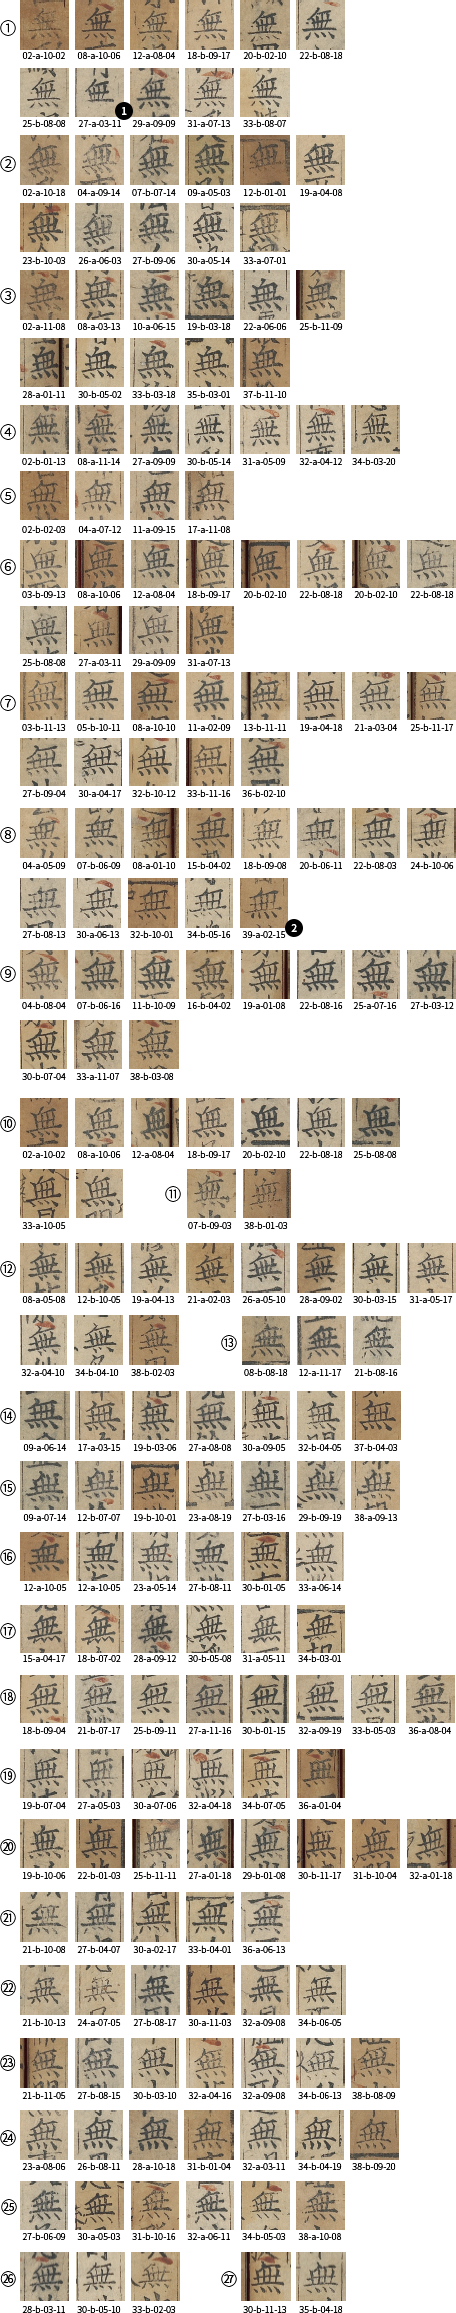 ① 無 無 無 無 無 無
02-a-10-02 08-a-10-06 12-a-08-04 18-b-09-17 20-b-02-10 22-b-08-18
無 無 無 無 無
25-b-08-08 27-a-03-11 ❶ 29-a-09-09 31-a-07-13 33-b-08-07
② 無 無 無 無 無 無
02-a-10-18 04-a-09-14 07-b-07-14 09-a-05-03 12-b-01-01 19-a-04-08
無 無 無 無 無
23-b-10-03 26-a-06-03 27-b-09-06 30-a-05-14 33-a-07-01
③ 無 無 無 無 無 無
02-a-11-08 08-a-03-13 10-a-06-15 19-b-03-18 22-a-06-06 25-b-11-09
無 無 無 無 無
28-a-01-11 30-b-05-02 33-b-03-18 35-b-03-01 37-b-11-10
④ 無 無 無 無 無 無 無
02-b-01-13 08-a-11-14 27-a-09-09 30-b-05-14 31-a-05-09 32-a-04-12 34-b-03-20
⑤ 無 無 無 無
02-b-02-03 04-a-07-12 11-a-09-15 17-a-11-08
⑥ 無 無 無 無 無 無 無 無
03-b-09-13 08-a-10-06 12-a-08-04 18-b-09-17 20-b-02-10 22-b-08-18 20-b-02-10 22-b-08-18
無 無 無 無
25-b-08-08 27-a-03-11 29-a-09-09 31-a-07-13
⑦ 無 無 無 無 無 無 無 無
03-b-11-13 05-b-10-11 08-a-10-10 11-a-02-09 13-b-11-11 19-a-04-18 21-a-03-04 25-b-11-17
無 無 無 無 無
27-b-09-04 30-a-04-17 32-b-10-12 33-b-11-16 36-b-02-10
⑧ 無 無 無 無 無 無 無 無
04-a-05-09 07-b-06-09 08-a-01-10 15-b-04-02 18-b-09-08 20-b-06-11 22-b-08-03 24-b-10-06
無 無 無 無 無
27-b-08-13 30-a-06-13 32-b-10-01 34-b-05-16 39-a-02-15 ❷
⑨ 無 無 無 無 無 無 無 無
04-b-08-04 07-b-06-16 11-b-10-09 16-b-04-02 19-a-01-08 22-b-08-16 25-a-07-16 27-b-03-12
無 無 無
30-b-07-04 33-a-11-07 38-b-03-08
⑩ 無 無 無 無 無 無 無
02-a-10-02 08-a-10-06 12-a-08-04 18-b-09-17 20-b-02-10 22-b-08-18 25-b-08-08
無 無 ⑪ 無 無
33-a-10-05 07-b-09-03 38-b-01-03
⑫ 無 無 無 無 無 無 無 無
08-a-05-08 12-b-10-05 19-a-04-13 21-a-02-03 26-a-05-10 28-a-09-02 30-b-03-15 31-a-05-17
無 無 無 ⑬ 無 無 無
32-a-04-10 34-b-04-10 38-b-02-03 08-b-08-18 12-a-11-17 21-b-08-16
⑭ 無 無 無 無 無 無 無
09-a-06-14 17-a-03-15 19-b-03-06 27-a-08-08 30-a-09-05 32-b-04-05 37-b-04-03
⑮ 無 無 無 無 無 無 無
09-a-07-14 12-b-07-07 19-b-10-01 23-a-08-19 27-b-03-16 29-b-09-19 38-a-09-13
⑯ 無 無 無 無 無 無
12-a-10-05 12-a-10-05 23-a-05-14 27-b-08-11 30-b-01-05 33-a-06-14
⑰ 無 無 無 無 無 無
15-a-04-17 18-b-07-02 28-a-09-12 30-b-05-08 31-a-05-11 34-b-03-01
⑱ 無 無 無 無 無 無 無 無
18-b-09-04 21-b-07-17 25-b-09-11 27-a-11-16 30-b-01-15 32-a-09-19 33-b-05-03 36-a-08-04
⑲ 無 無 無 無 無 無
19-b-07-04 27-a-05-03 30-a-07-06 32-a-04-18 34-b-07-05 36-a-01-04
⑳ 無 無 無 無 無 無 無 無
19-b-10-06 22-b-01-03 25-b-11-11 27-a-01-18 29-b-01-08 30-b-11-17 31-b-10-04 32-a-01-18
㉑ 無 無 無 無 無
21-b-10-08 27-b-04-07 30-a-02-17 33-b-04-01 36-a-06-13
㉒ 無 無 無 無 無 無
21-b-10-13 24-a-07-05 27-b-08-17 30-a-11-03 32-a-09-08 34-b-06-05
㉓ 無 無 無 無 無 無 無
21-b-11-05 27-b-08-15 30-b-03-10 32-a-04-16 32-a-09-08 34-b-06-13 38-b-08-09
㉔ 無 無 無 無 無 無 無
23-a-08-06 26-b-08-11 28-a-10-18 31-b-01-04 32-a-03-11 34-b-04-19 38-b-09-20
㉕ 無 無 無 無 無 無
27-b-06-09 30-a-05-03 31-b-10-16 32-a-06-11 34-b-05-03 38-a-10-08
㉖ 無 無 無 ㉗ 無 無
28-b-03-11 30-b-05-10 33-b-02-03 30-b-11-13 35-b-04-18